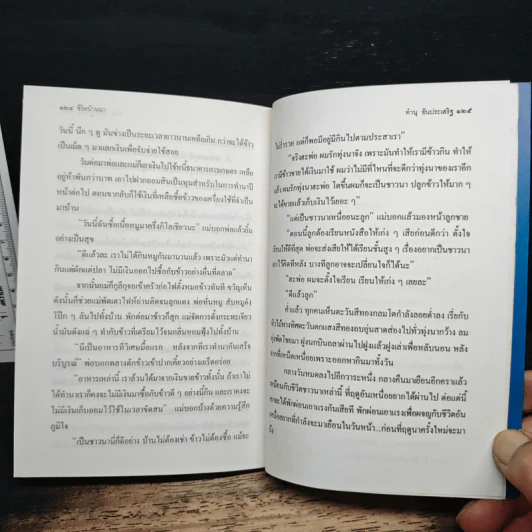 ๑๒๔ ชีวิตบ้านนา
วันนี้ นึก ๆ ดู มันช่างเป็นระยะเวลายาวนานเหลือเกิน กว่าจะได้ข้าว
เป็นเม็ด ๆ มาแลกเงินเพื่อจับจ่ายใช้สอย
วันต่อมาพ่อและแม่ก็เอาเงินไปใช้หนี้ธนาคารการเกษตร เหลือ
อยู่ห้าพันกว่าบาท เอาไปฝากออมสินเป็นทุนสำหรับในการทำนาปี
หน้าต่อไป ตอนขากลับก็ใช้เงินที่เหลือซื้อข้าวของเครื่องใช้ที่จำเป็น
มาบ้าน
"วันนี้ฉันซื้อเนื้อหมูมาครึ่งกิโลเชียวนะ" แม่บอกพ่อแล้วยิ้ม
อย่างเป็นสุข
"ดีแล้วละ เราไม่ได้กินหมูกันมานานแล้ว เพราะมัวแต่ทำนา
กินแต่ผักแต่ปลา ไม่มีเงินออกไปซื้อกับข้าวอย่างอื่นที่ตลาด"
จากนั้นแม่ก็กุลีกุจอเข้าครัวก่อไฟตั้งหม้อข้าวทันที ขวัญเห็น
ดังนั้นก็ช่วยแม่พัดเตาไฟที่ถ่านติดจนลุกแดง พ่อหั่นหมู สับหมูดัง
โป๊ก ๆ ลั่นไปทั้งบ้าน พักต่อมาข้าวก็สุก แม่จัดการตั้งกระทะเจียว
น้ำมันดังแฉ่ ๆ ทำกับข้าวที่เตรียมไว้จนกลิ่นหอมฟุ้งไปทั้งบ้าน
"มีเป็นอาหารที่วิเศษมื้อแรก หลังจากที่เราทำนากันเสร็จ
บริบูรณ์" พ่อบอกพลางตักข้าวเข้าปากเคี้ยวอย่างเอร็ดอร่อย
"อาหารเหล่านี้ เราล้วนได้มาจากเงินขายข้าวทั้งนั้น ถ้าเราไม่
ได้ทำนาเราก็คงจะไม่มีเงินมาซื้อกับข้าวดี ๆ อย่างนี้กิน และเราคงจะ
ไม่มีเงินเก็บออมไว้ใช้ในเวลาขัดสน" แม่บอกบ้างด้วยความรู้สึก
ภูมิใจ
"เป็นชาวนานี่ก็ดีอย่าง บ้านไม่ต้องเช่า ข้าวไม่ต้องซื้อ แม้จะ
ทำนุ ชันประเสริฐ ๑๒๕
ไม่ร่ำรวย แต่ก็พอมีอยู่มีกินไปตามประสาเรา"
"จริงสะพ่อ ผมรักทุ่งนาจัง เพราะมันทำให้เรามีข้าวกิน ทำให้
เรามีข้าวขายได้เงินมาใช้ ผมว่าไม่มีที่ไหนที่จะดีกว่าทุ่งนาของเราอีก
แล้ว ผมรักทุ่งนาสะพ่อ โตขึ้นผมก็จะเป็นชาวนา ปลูกข้าวให้มาก ๆ
จะได้ขายแล้วเก็บเงินไว้เยอะ ๆ"
"แต่เป็นชาวนาเหนื่อยนะลูก" แม่บอกแล้วมองหน้าลูกชาย
"ตอนนี้ลูกต้องเรียนหนังสือให้เก่ง ๆ เสียก่อนดีกว่า ตั้งใจ
เรียนให้ดีที่สุด พ่อจะส่งเสียให้ได้เรียนชั้นสูง ๆ เรื่องอยากเป็นชาวนา
เอาไว้คิดทีหลัง บางทีลูกอาจจะเปลี่ยนใจก็ได้นะ"
"สะพ่อ ผมจะตั้งใจเรียน เรียนให้เก่ง ๆ เลยละ"
"ดีแล้วลูก"
ค่ำแล้ว ทุกคนเห็นตะวันสีทองกลมโตกำลังลอยต่ำลง เรี่ยกับ
ทิวไม้ทางทิศตะวันตกแสงสีทองอบอุ่นสาดส่องไปทั่วทุ่งนากว้าง ลม
ทุ่งพัดโชยมา ฝูงนกบินถลาผ่านไปฝูงแล้วฝูงเล่าเพื่อหลับนอน หลัง
จากที่เหน็ดเหนื่อยเพราะออกหากินมาทั้งวัน
กลางวันหมดลงไปอีกวาระหนึ่ง กลางคืนมาเยือนอีกคราแล้ว
เหมือนกับชีวิตชาวนาเหล่านี้ ที่ฤดูอันเหนื่อยยากได้ผ่านไป ต่อแต่นี้
เขาจะได้พักผ่อนเอาแรงกันเสียที พักผ่อนเอาแรงเพื่อผจญกับชีวิตอัน
เหนื่อยยากที่กำลังจะมาเยือนในวันหน้า...ก่อนที่ฤดูนาครั้งใหม่จะมา
ถึง